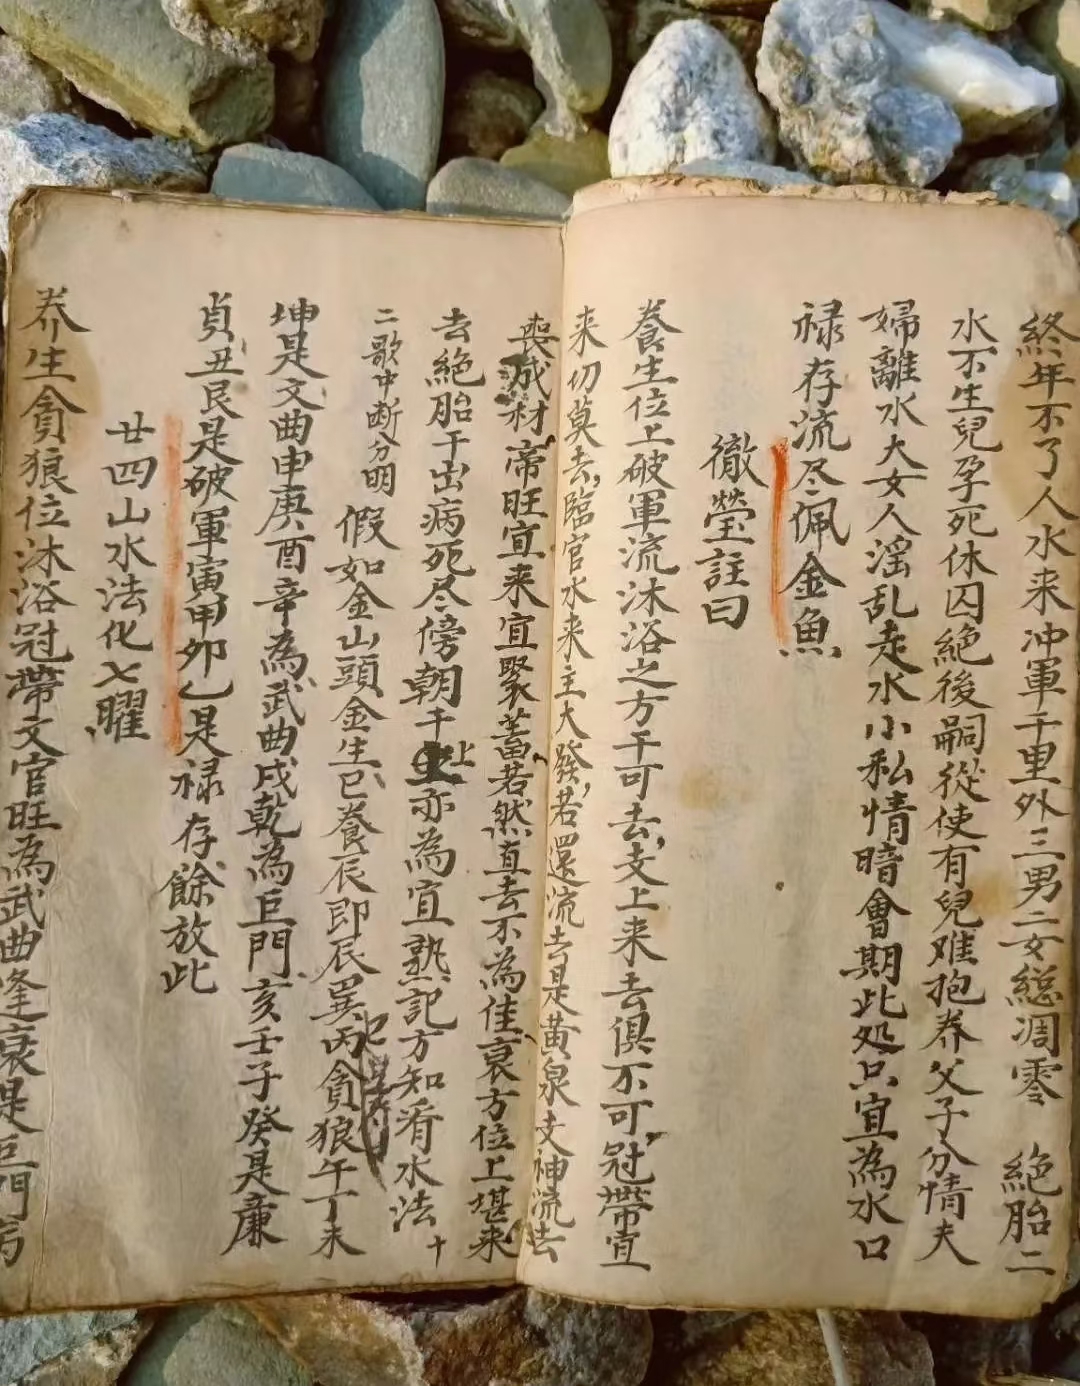 終年不了人水来冲軍千里外三男二女総凋零　絶胎二
水不生兒孕死休囚絶後嗣從使有兒难抱养父子分情夫
婦離水大女人滛乱走水小私情暗會期此処只宜為水口
禄存流尽佩金魚
徹瑩註曰
養生位上破軍流沐浴之方干可去支上来去俱不可冠帶宜
来切莫去臨官水来主大發若還流去是黄泉支神流去
喪成材帝旺宜来宜聚蓄若然直去不為佳衰方位上堪来
去絶胎干出病死尽傍朝干上亦為宜熟記方知看水法十
二歌中断分明　假如金山頭金生巳養辰即辰巽丙貪狼午丁未
坤是文曲申庚酉辛為武曲戌乾為巨門亥壬子癸是廉
貞丑艮是破軍寅甲卯乙是禄存餘放此
廿四山水法化七曜
养生貪狼位沐浴冠帶文官旺為武曲逢衰是巨門